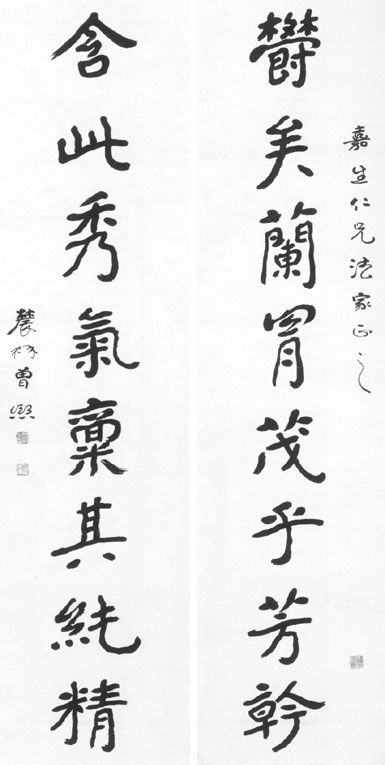 嘉生仁兄法家正之
鬱矣蘭胄茂乎芳幹
含此秀氣稟其純精
農髯曾熙